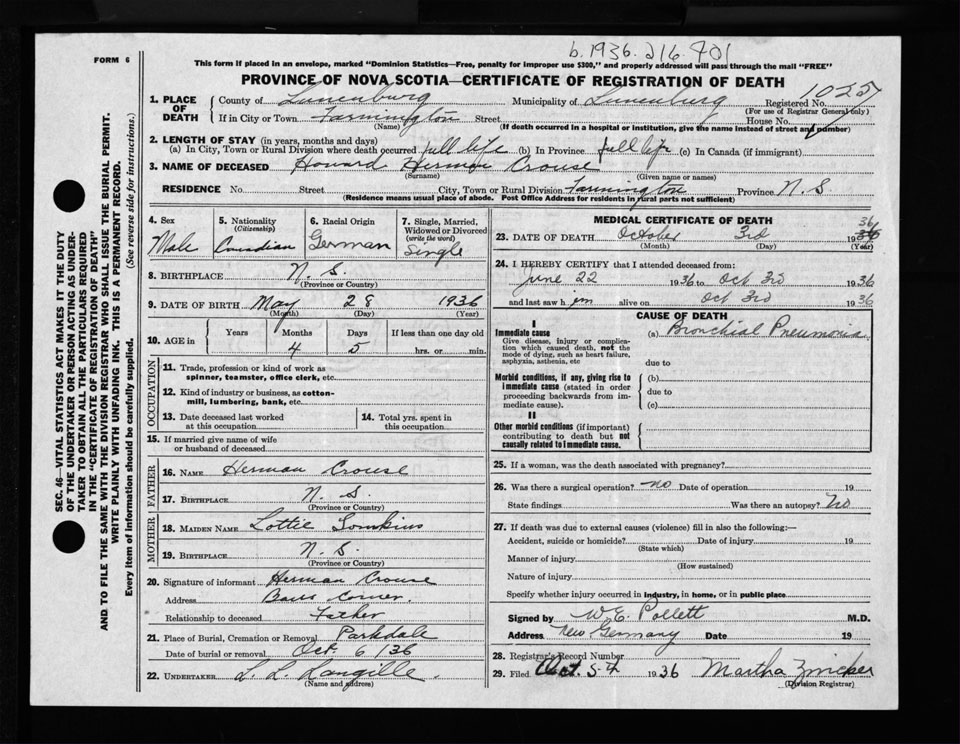 b. 1936. 216 401
FORM 6
This form if placed in an envelope, marked "Dominion Statistics—Free, penalty for improper use $300," and properly addressed will pass through the mail "FREE"
PROVINCE OF NOVA SCOTIA—CERTIFICATE OF REGISTRATION OF DEATH
1. PLACE OF DEATH County of Lunenburg Municipality of Lunenburg Registered No. 1025
(For use of Registrar General only)
If in City or Town Farmington Street House No.
(Name) (If death occurred in a hospital or institution, give the name instead of street and number)
2. LENGTH OF STAY (in years, months and days)
(a) In City, Town or Rural Division where death occurred full life (b) In Province full life (c) In Canada (if immigrant)
3. NAME OF DECEASED Howard Herman Crouse
(Surname) (Given name or names)
RESIDENCE No. Street City, Town or Rural Division Farmington Province N. S.
(Residence means usual place of abode. Post Office Address for residents in rural parts not sufficient)
4. Sex Male
5. Nationality (Citizenship) Canadian
6. Racial Origin German
7. Single, Married, Widowed or Divorced (write the word) Single
8. BIRTHPLACE N. S.
(Province or Country)
9. DATE OF BIRTH May 28 1936
(Month) (Day) (Year)
10. AGE in Years Months Days If less than one day old
4 5 hrs. or min.
OCCUPATION
11. Trade, profession or kind of work as spinner, teamster, office clerk, etc.
12. Kind of industry or business, as cotton-mill, lumbering, bank, etc.
13. Date deceased last worked at this occupation
14. Total yrs. spent in this occupation
15. If married give name of wife or husband of deceased
FATHER
16. NAME Herman Crouse
17. BIRTHPLACE N. S.
(Province or Country)
MOTHER
18. MAIDEN NAME Lottie
19. BIRTHPLACE N. S.
(Province or Country)
20. Signature of informant Herman Crouse
Address Barss Corner.
Relationship to deceased Father
21. Place of Burial, Cremation or Removal Parkdale
Date of burial or removal Oct. 6/36
22. UNDERTAKER L. L. Langille.
(Name and address)
MEDICAL CERTIFICATE OF DEATH
23. DATE OF DEATH October 3rd 1936
(Month) (Day) (Year)
24. I HEREBY CERTIFY that I attended deceased from:
June 22 1936 to Oct 3rd 1936
and last saw him alive on Oct 3rd 1936
CAUSE OF DEATH
I
Immediate cause
Give disease, injury or complication which caused death, not the mode of dying, such as heart failure, asphyxia, asthenia, etc
(a) Bronchial Pneumonia
due to
Morbid conditions, if any, giving rise to immediate cause (stated in order proceeding backwards from immediate cause).
(b)
due to
(c)
II
Other morbid conditions (if important) contributing to death but not causally related to immediate cause.
25. If a woman, was the death associated with pregnancy?
26. Was there a surgical operation? no Date of operation 19
State findings Was there an autopsy? No
27. If death was due to external causes (violence) fill in also the following:—
Accident, suicide or homicide? Date of injury 19
(State which)
Manner of injury
(How sustained)
Nature of injury
Specify whether injury occurred in industry, in home, or in public place
Signed by W. E. Pollett M.D.
Address New Germany Date 19
28. Registrar's Record Number
29. Filed Oct. 5th 1936 Martha Zwicker
(Division Registrar)
SEC. 46—VITAL STATISTICS ACT MAKES IT THE DUTY
OF THE UNDERTAKER OR PERSON ACTING AS UNDER-
TAKER TO OBTAIN ALL THE PARTICULARS REQUIRED
IN THE "CERTIFICATE OF REGISTRATION OF DEATH"
AND TO FILE THE SAME WITH THE DIVISION REGISTRAR WHO SHALL ISSUE THE BURIAL PERMIT.
WRITE PLAINLY WITH UNFADING INK. THIS IS A PERMANENT RECORD.
Every item of information should be carefully supplied. (See reverse side for instructions.)